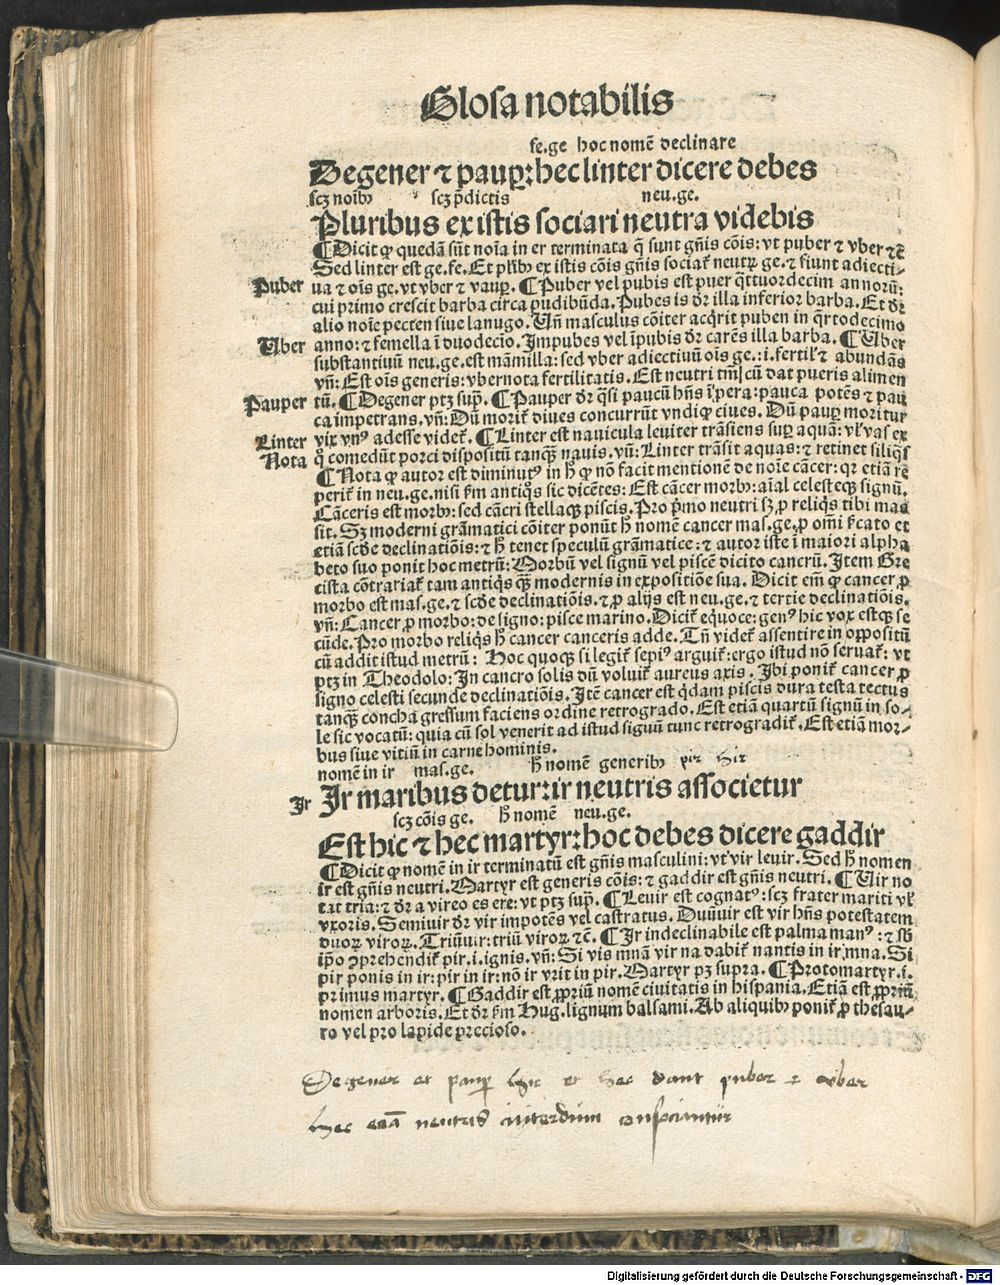 Glosa notabilis
fe.ge hoc nomē declinare
Degener ⁊ paup̲: hec linter dicere debes
scꝫ noībꝰ scꝫ p̄dictis neu.ge.
Pluribus ex istis sociari neutra videbis
¶Dicit ꝙ quedā sūt noīa in er terminata q̄ sunt gn̄is cōis: vt puber ⁊ vber ⁊c̄
Sed linter est ge.fe. Et pl̄ibꝰ ex istis cōis gn̄is sociar̄ neutrꝝ ge. ⁊ fiunt adiecti-
Puber ua ⁊ oīs ge. vt vber ⁊ paup̲. ¶Puber vel pubis est puer q̄ttuordecim annorū:
cui primo crescit barba circa pudibūda. Pubes is dr̄ illa inferior barba. Et dr̄
alio noīe pecten siue lanugo. Vn̄ masculus cōiter acq̄rit puben in q̄rtodecimo
Uber anno: ⁊ femella ī duodecīo. Impubes vel īpubis dr̄ carēs illa barba. ¶Uber
substantiuū neu.ge. est māmilla: sed vber adiectiuū oīs ge.: i. fertil' ⁊ abundās
vn̄: Est oīs generis: vbernota fertilitatis. Est neutri tm̄ cū dat pueris alimen
Pauper tū. ¶Degener ptꝫ sup̄. ¶Pauper dr̄ q̄si paucū hn̄s ī pera: pauca potēs ⁊ pau
ca impetrans. vn̄: Dū morit̄ diues concurrūt vndiqꝫ ciues. Dū paup̲ moritur
Linter vix vnꝰ adesse videt̄. ¶Linter est nauicula leuiter trāsiens sup̲ aquā: vl' vas ex
Nota q̊ comedūt porci dispositū tanqꝫ nauis. vn̄: Linter trāsit aquas: ⁊ retinet siliq̄s
¶Nota ꝙ autor est diminutꝰ in h̄ ꝙ nō facit mentionē de noīe cācer: qr etiā re
perit̄ in neu.ge. nisi s̄m antiq̊s sic dicētes: Est cācer morbꝰ: aīal celesteqꝫ signū.
Cāceris est morbꝰ: sed cācri stellaqꝫ piscis. Pro p̄mo neutri sꝫ p̲ reliq̊s tibi mas
sit. Sꝫ moderni grāmatici cōiter ponūt h̄ nomē cancer mas.ge. p̲ om̄i s̄cato et
etiā scd̄e declinatiōis: ⁊ h̄ tenet speculū grāmatice: ⁊ autor iste ī maiori alpha
beto suo ponit hoc metrū: Morbū vel signū vel piscē dicito cancrū. Item Gre
cista cōtrariat̄ tam antiq̊s qꝫ modernis in expositiōe sua. Dicit em̄ ꝙ cancer p̲
morbo est mas.ge. ⁊ scd̄e declinatiōis. ⁊ p̲ alijs est neu.ge. ⁊ tertie declinatiōis.
vn̄: Cancer p̲ morbo: de signo: pisce marino. Dicit̄ equoce: genꝰ hic vox estqꝫ se
cūde. Pro morbo reliq̊s h̄ cancer canceris adde. Tn̄ videt̄ assentire in oppositū
cū addit istud metrū: Hoc quoqꝫ si legit̄ sepiꝰ arguit̄: ergo istud nō seruat̄: vt
ptꝫ in Theodolo: In cancro solis dū voluit̄ aureus axis. Ibi ponit̄ cancer p̲
signo celesti secunde declinatiōis. Itē cancer est q̄dam piscis dura testa tectus
tanqꝫ concha gressum faciens ordine retrogrado. Est etiā quartū signū in so-
le sic vocatū: quia cū sol venerit ad istud signū tunc retrogradit̄. Est etiā mor-
bus siue vitiū in carne hominis.
nomē in ir mas.ge. h̄ nomē generibꝰ vir hir
Ir Ir maribus detur: ir neutris associetur
scꝫ cōis ge. h̄ nomē neu.ge.
Est hic ⁊ hec martyr: hoc debes dicere gaddir
¶Dicit ꝙ nomē in ir terminatū est gn̄is masculini: vt vir leuir. Sed h̄ nomen
ir est gn̄is neutri. Martyr est generis cōis: ⁊ gaddir est gn̄is neutri. ¶Uir no
tat tria: ⁊ dr̄ a vireo es ere: vt ptꝫ sup̄. ¶Leuir est cognatꝰ: scꝫ frater mariti vl'
vxoris. Semiuir dr̄ vir impotēs vel castratus. Duūuir est vir hn̄s potestatem
duoꝝ viroꝝ. Triūuir: triū viroꝝ ⁊c̄. ¶Ir indeclinabile est palma manꝰ: ⁊ sb̄
ip̄o ꝯprehendit̄ pir. i. ignis. vn̄: Si vis mnā vir na dabit̄ nantis in ir mna. Si
pir ponis in ir: pir in ir: nō ir vrit in pir. Martyr pꝫ supra. ¶Protomartyr. i.
primus martyr. ¶Gaddir est ꝓpriū nomē ciuitatis in hispania. Etiā est ꝓpriū
nomen arboris. Et dr̄ s̄m Hug. lignum balsami. Ab aliquibꝰ ponit̄ p̲ thesau-
ro vel pro lapide precioso.
Degener et paup̲ hic et hec dant puber ⁊ vber
hec etiā neutris interdum consociantur
Digitalisierung gefördert durch die Deutsche Forschungsgemeinschaft - DFG